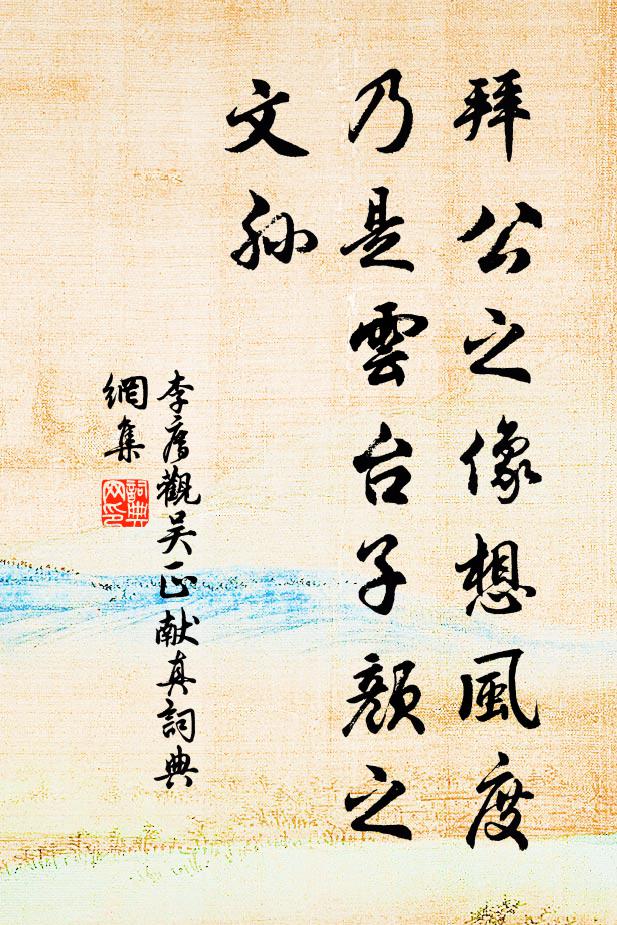 拜公之像想風度
乃是雲台子顏之
文孙
李廌觀吴正献真詞典
網集
詞典
网印